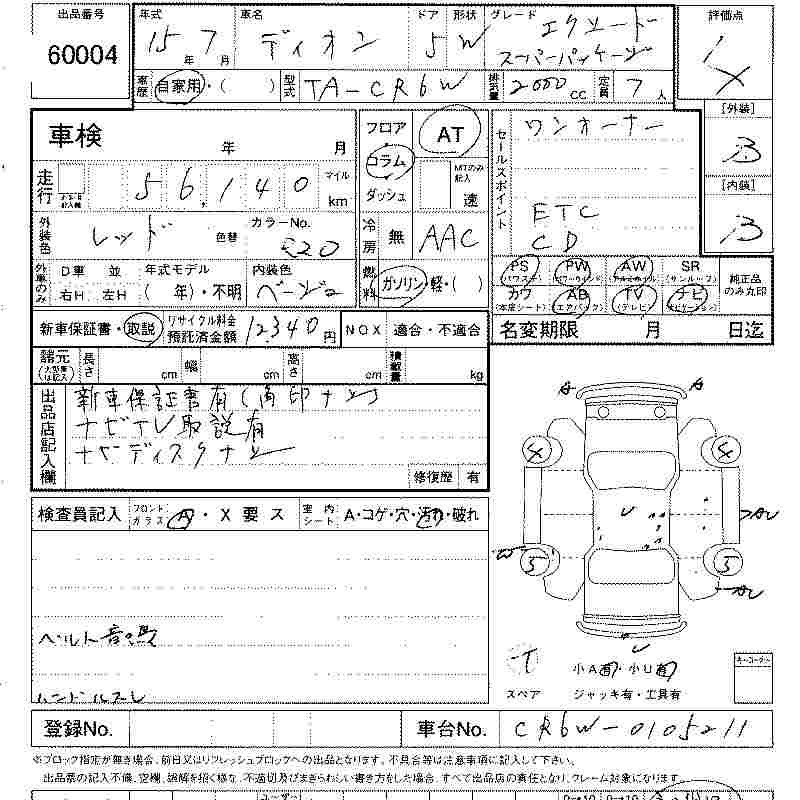 出品番号 年式 車名 ドア 形状 グレード 評価点
60004 15年 7月 ディオン 5 W エクシード スーパーパッケージ
車歴 自家用・( ) 型式 TA-CR6W 排気量 2000cc 定員 7人
車検 年 月 フロア AT セールスポイント ワンオーナー [外装]
B
走行 56,140 マイル km コラム MTのみ記入 [内装]
ダッシュ 速 ETC B
外装色 レッド 色替 カラーNo. 冷房 無 AAC CD
外車のみ D車 並 年式モデル 内装色 燃料 ガソリン・軽・( ) PS (パワステ) PW (パワーウインド) AW (アルミホイール) SR (サンルーフ) 純正品のみ丸印
右H 左H ( 年)・不明 ベージュ カワ (本皮シート) AB (エアバック) TV (テレビ) ナビ (ナビゲーション)
新車保証書・取説 リサイクル料金預託済金額 12,340円 NOX 適合・不適合 名変期限 月 日迄
諸元 (大型車は記入) 長さ cm 幅 cm 高さ cm 積載量 kg
出品店記入欄 新車保証書有(角印ナシ)
ナビTV取説有
ナビディスクナシ
修復歴 有
検査員記入 フロントガラス A・X要ス 室内シート A・コゲ・穴・汚れ・破れ
A A
4 4
U AU
W 5 5
AU
U
ベルト音異
ハンドルスレ
T スペア 小A有・小U有 キーコーナー
ジャッキ有・工具有
登録No. 車台No. CR6W-0105211
※ブロック指定が無き場合、前日又はリフレッシュブロックへの出品となります。不具合等は注意事項に記入して下さい。
出品票の記入不備、空欄、誤解を招く様な、不適切及びまぎらわしい書き方をした場合、すべて出品店の責任となり、クレーム対象になります。